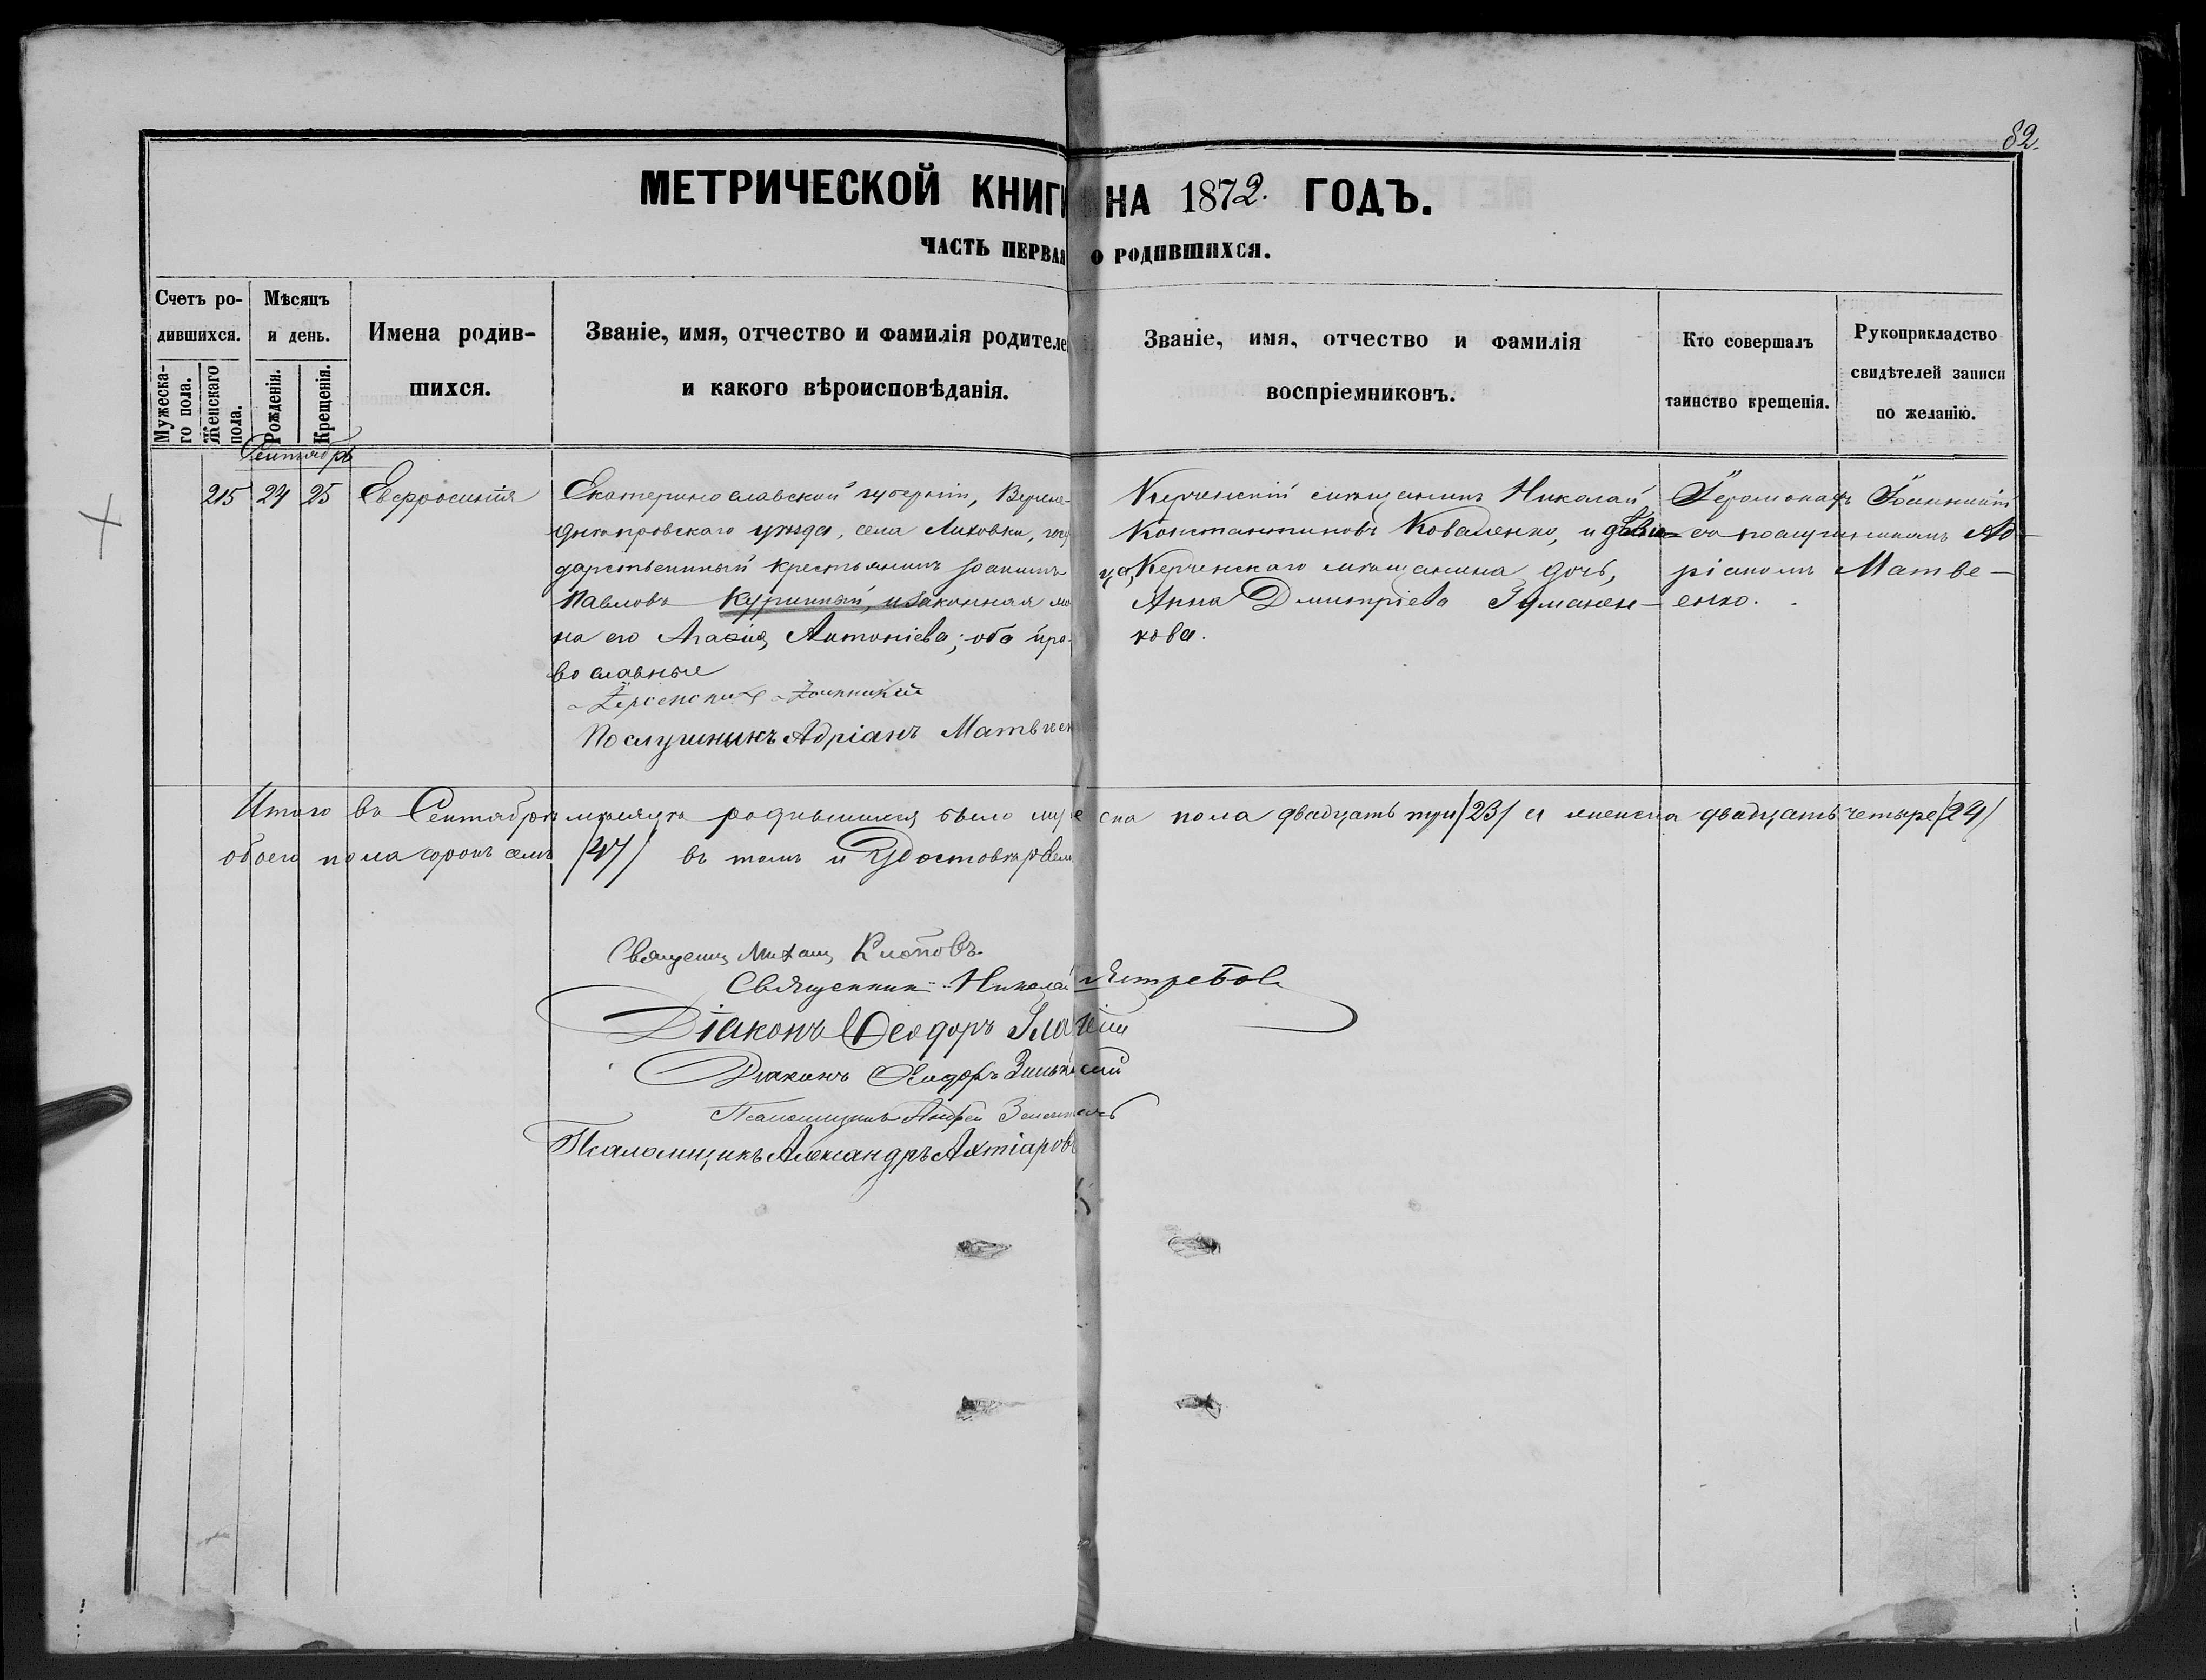 82.
МЕТРИЧЕСКОЙ КНИГИ НА 1872. ГОДЪ.
ЧАСТЬ ПЕРВАЯ О РОДИВШИХСЯ.
Счетъ ро-
дившихся.
Мужеска-
го пола.
Женскаго
пола.
Мѣсяцъ
и день.
Рожденія.
Крещенія.
Имена родив-
шихся.
Званіе, имя, отчество и фамилія родителе
и какого вѣроисповѣданія.
Званіе, имя, отчество и фамилія
воспріемниковъ.
Кто совершалъ
таинство крещенія.
Рукоприкладство
свидѣтелей записи
по желанію.
Сентябрь
215 24 25 Евфросинія
Екатеринославской губерніи, Верхне-
днѣпровскаго уѣзда, села Лиховки, госу
дарственный крестьянинъ Іоаннъ
Павловъ Куринный, и законная же
на его Агафія Антоніева; оба пра-
вославные
Іеромонахъ Іоанникій
Послушникъ Адріанъ Матвѣен
Керченскій мѣщанинъ Николай
Константиновъ Коваленко, и дѣви-
ца, Керченскаго мѣщанина дочь,
Анна Дмитріева Гуманен-
кова.
Іеромонахъ Іоанникій
съ послушникомъ Ад-
ріаномъ Матве-
енко.
Итого въ Сентябрѣ мѣсяцѣ родившихся было муже ска пола двадцать три /23/ и женска двадцать четыре /24/
обоего пола сорокъ семь /47/ въ томъ и удостовѣряемъ
Священникъ Михаилъ Клоповъ.
Священникъ Николай Ястребовъ
Діаконъ Ѳеодоръ
Діаконъ Ѳеодоръ Зиньк
Псаломщикъ Андрей
Псаломщикъ Александръ Ахтіаровъ